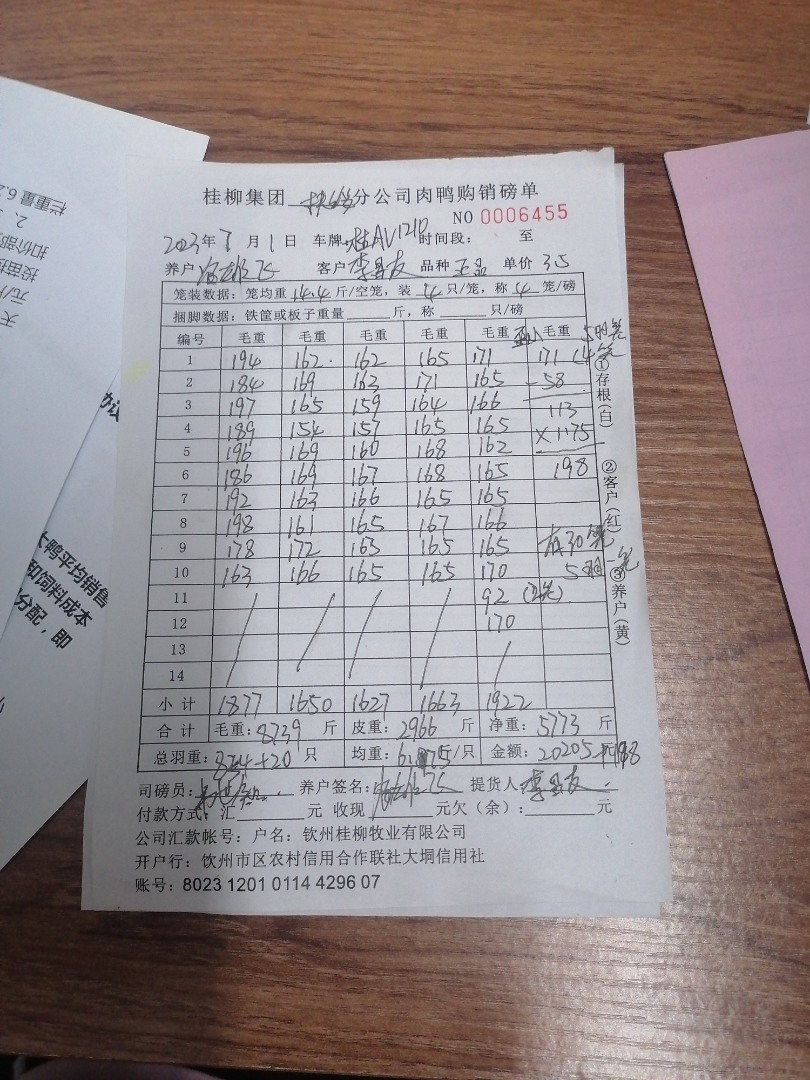 桂柳集团 分公司肉鸭购销磅单
NO 0006455
2023年7月1日 车牌:桂AV121D 时间段: 至
养户 客户 李 友 品种 单价 3.5
笼装数据:笼均重 14.4 斤/空笼,装 4 只/笼,称 4 笼/磅
捆脚数据:铁筐或板子重量 斤,称 只/磅
编号 毛重 毛重 毛重 毛重 毛重 毛重
1 194 162 162 165 171 171
2 184 169 163 171 165 -58
3 197 165 159 164 166 113
4 189 154 157 165 165 ×1.75
5 196 169 160 168 162
6 186 169 167 168 165 198
7 192 163 166 165 165
8 198 161 165 167 166
9 178 172 163 165 165
10 163 166 165 165 170
11 92
12 170
13
14
小计 1877 1650 1627 1663 1922
合计 毛重:8739 斤 皮重:2966 斤 净重:5773 斤
总羽重: +20 只 均重: 斤/只 金额:20205 198
司磅员: 养户签名: 提货人 李 友
付款方式:汇 元 收现 元欠(余): 元
公司汇款帐号:户名:钦州桂柳牧业有限公司
开户行:钦州市区农村信用合作联社大垌信用社
账号:8023 1201 0114 4296 07
①存根(白)
②客户(红)
③养户(黄)
大鸭平均销售
和饲料成本
分配,即
栏重量6.2
2、
扣价部
投苗
元/
天